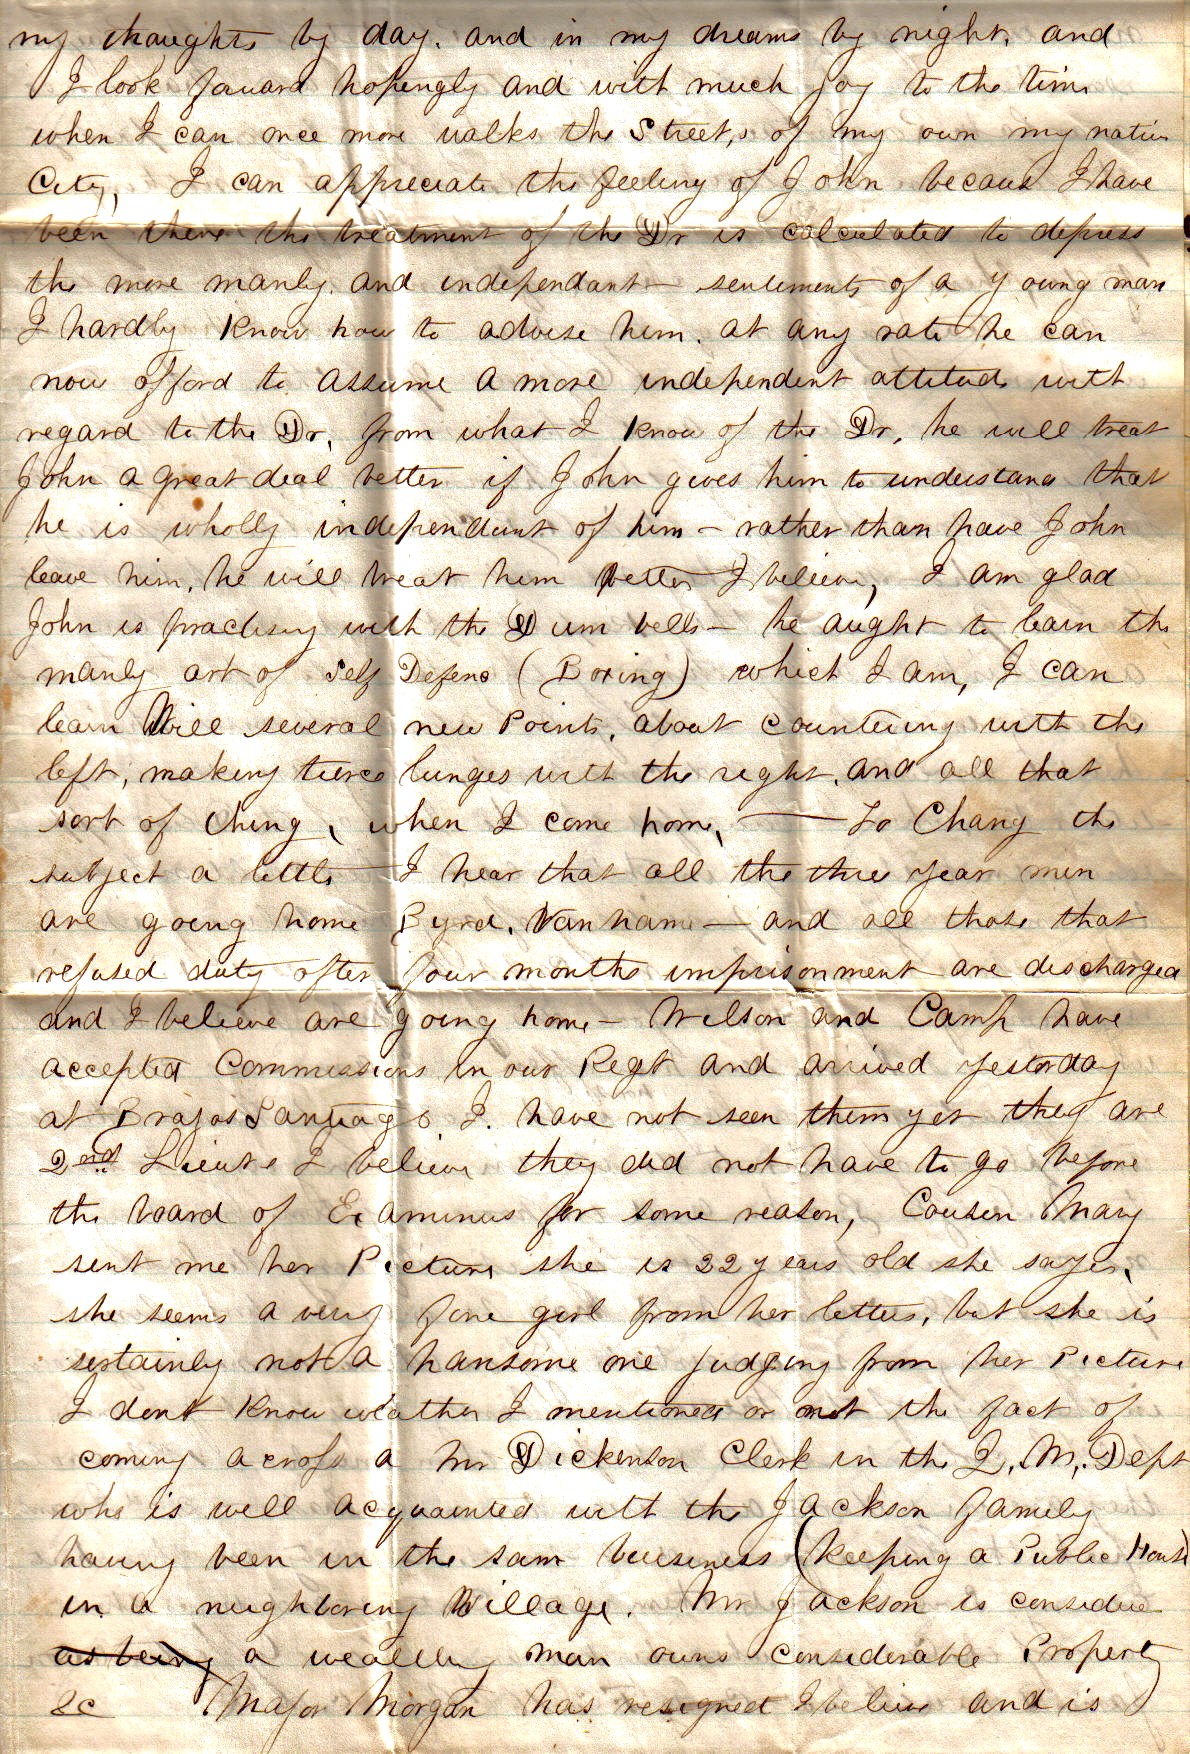 my thoughts by day. and in my dreams by night, and
I look foward hopengly and with much joy to the time
when I can once more walks the Street,s of my own my native
City, I can appreciate the feeling of John because I have
been there the treatment of the Dr is calculated to depress
the more manly. and independant — sentiments of a young man
I hardly Know how to advise him. at any rate he can
now afford to assume a more independent attitude with
regard to the Dr, from what I know of the Dr, he will treat
John a great deal better if John gives him to understand that
he is wholly independant of him — rather than have John
leave him, he will treat him better I believe, I am glad
John is practising with the Dum bells — he aught to learn the
manly art of Self Defence (Boxing) which I am, I can
learn Will several new Points, about countering with the
left, making tierce lunges with the right, and all that
sort of thing, when I come home, — To Change the
subject a little — I hear that all the three year men
are going home Byrd, Vanhame — and all those that
refused duty after four months imprisonment are discharged
and I believe are going home — Wilson and Camp have
accepted Commissions in our Regt and arrived yesterday
at Brazos Santiago I. have not seen them yet they are
2nd Lieuts I believe they did not have to go before
the board of Examiners for some reason, Cousen Mary
sent me her Picture, she is 22 years old she sayes,
she seems a very fine girl from her letters, but she is
sertainly not a hansome one judging from her Picture
I dont Know weather I mentioned or not the fact of
coming across a Mr Dickenson Clerk in the Q. M. Dept
who is well acquainted with the Jackson family
having been in the same buisiness (keeping a Public House)
in a neighboring Village. Mr Jackson is considere
as being a wealthy man owns considerable Property
&c Major Morgan has resigned I believe and is